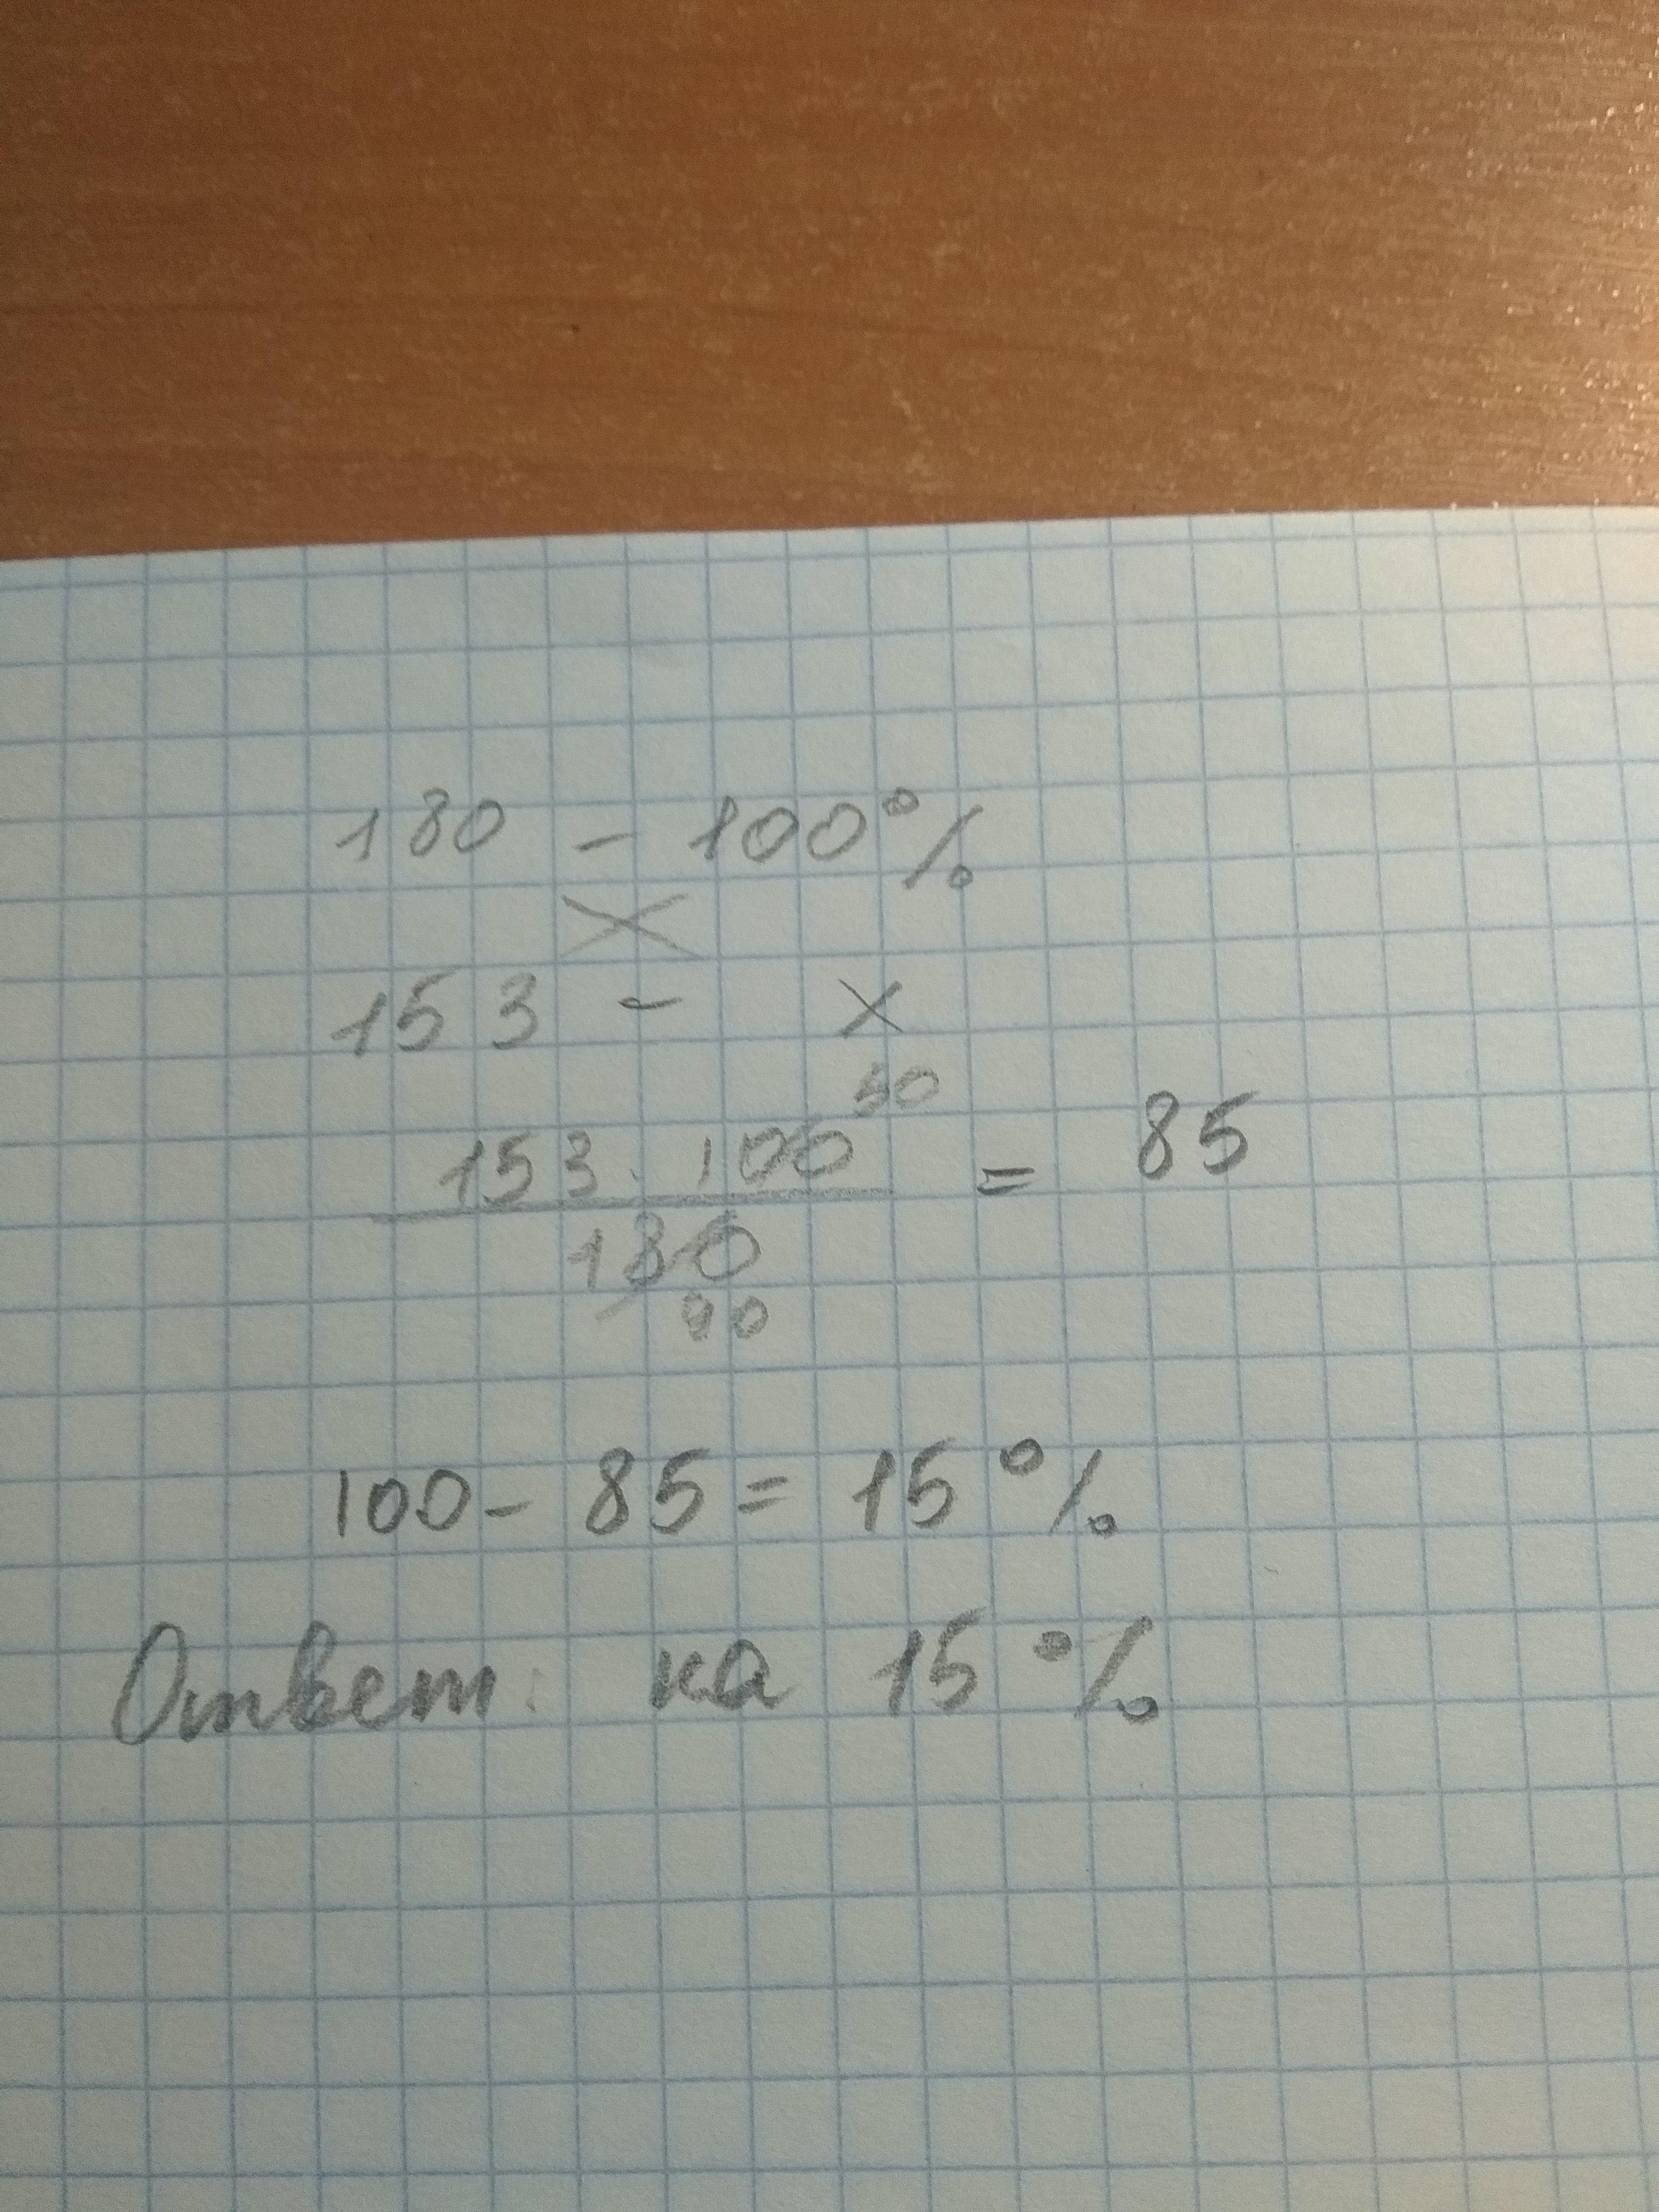 180 - 100%
153 - x
50
153 · 100
180
90
= 85
100 - 85 = 15%
Ответ: на 15%